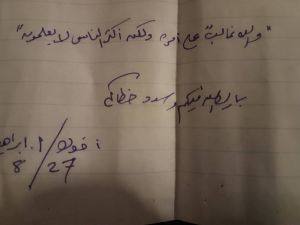 "والله غالب على أمره ولكن أكثر الناس لا يعلمون"
بارك الله فيكم وسدد خطاكم
أخوكم / أ. ابراهيم
27/8